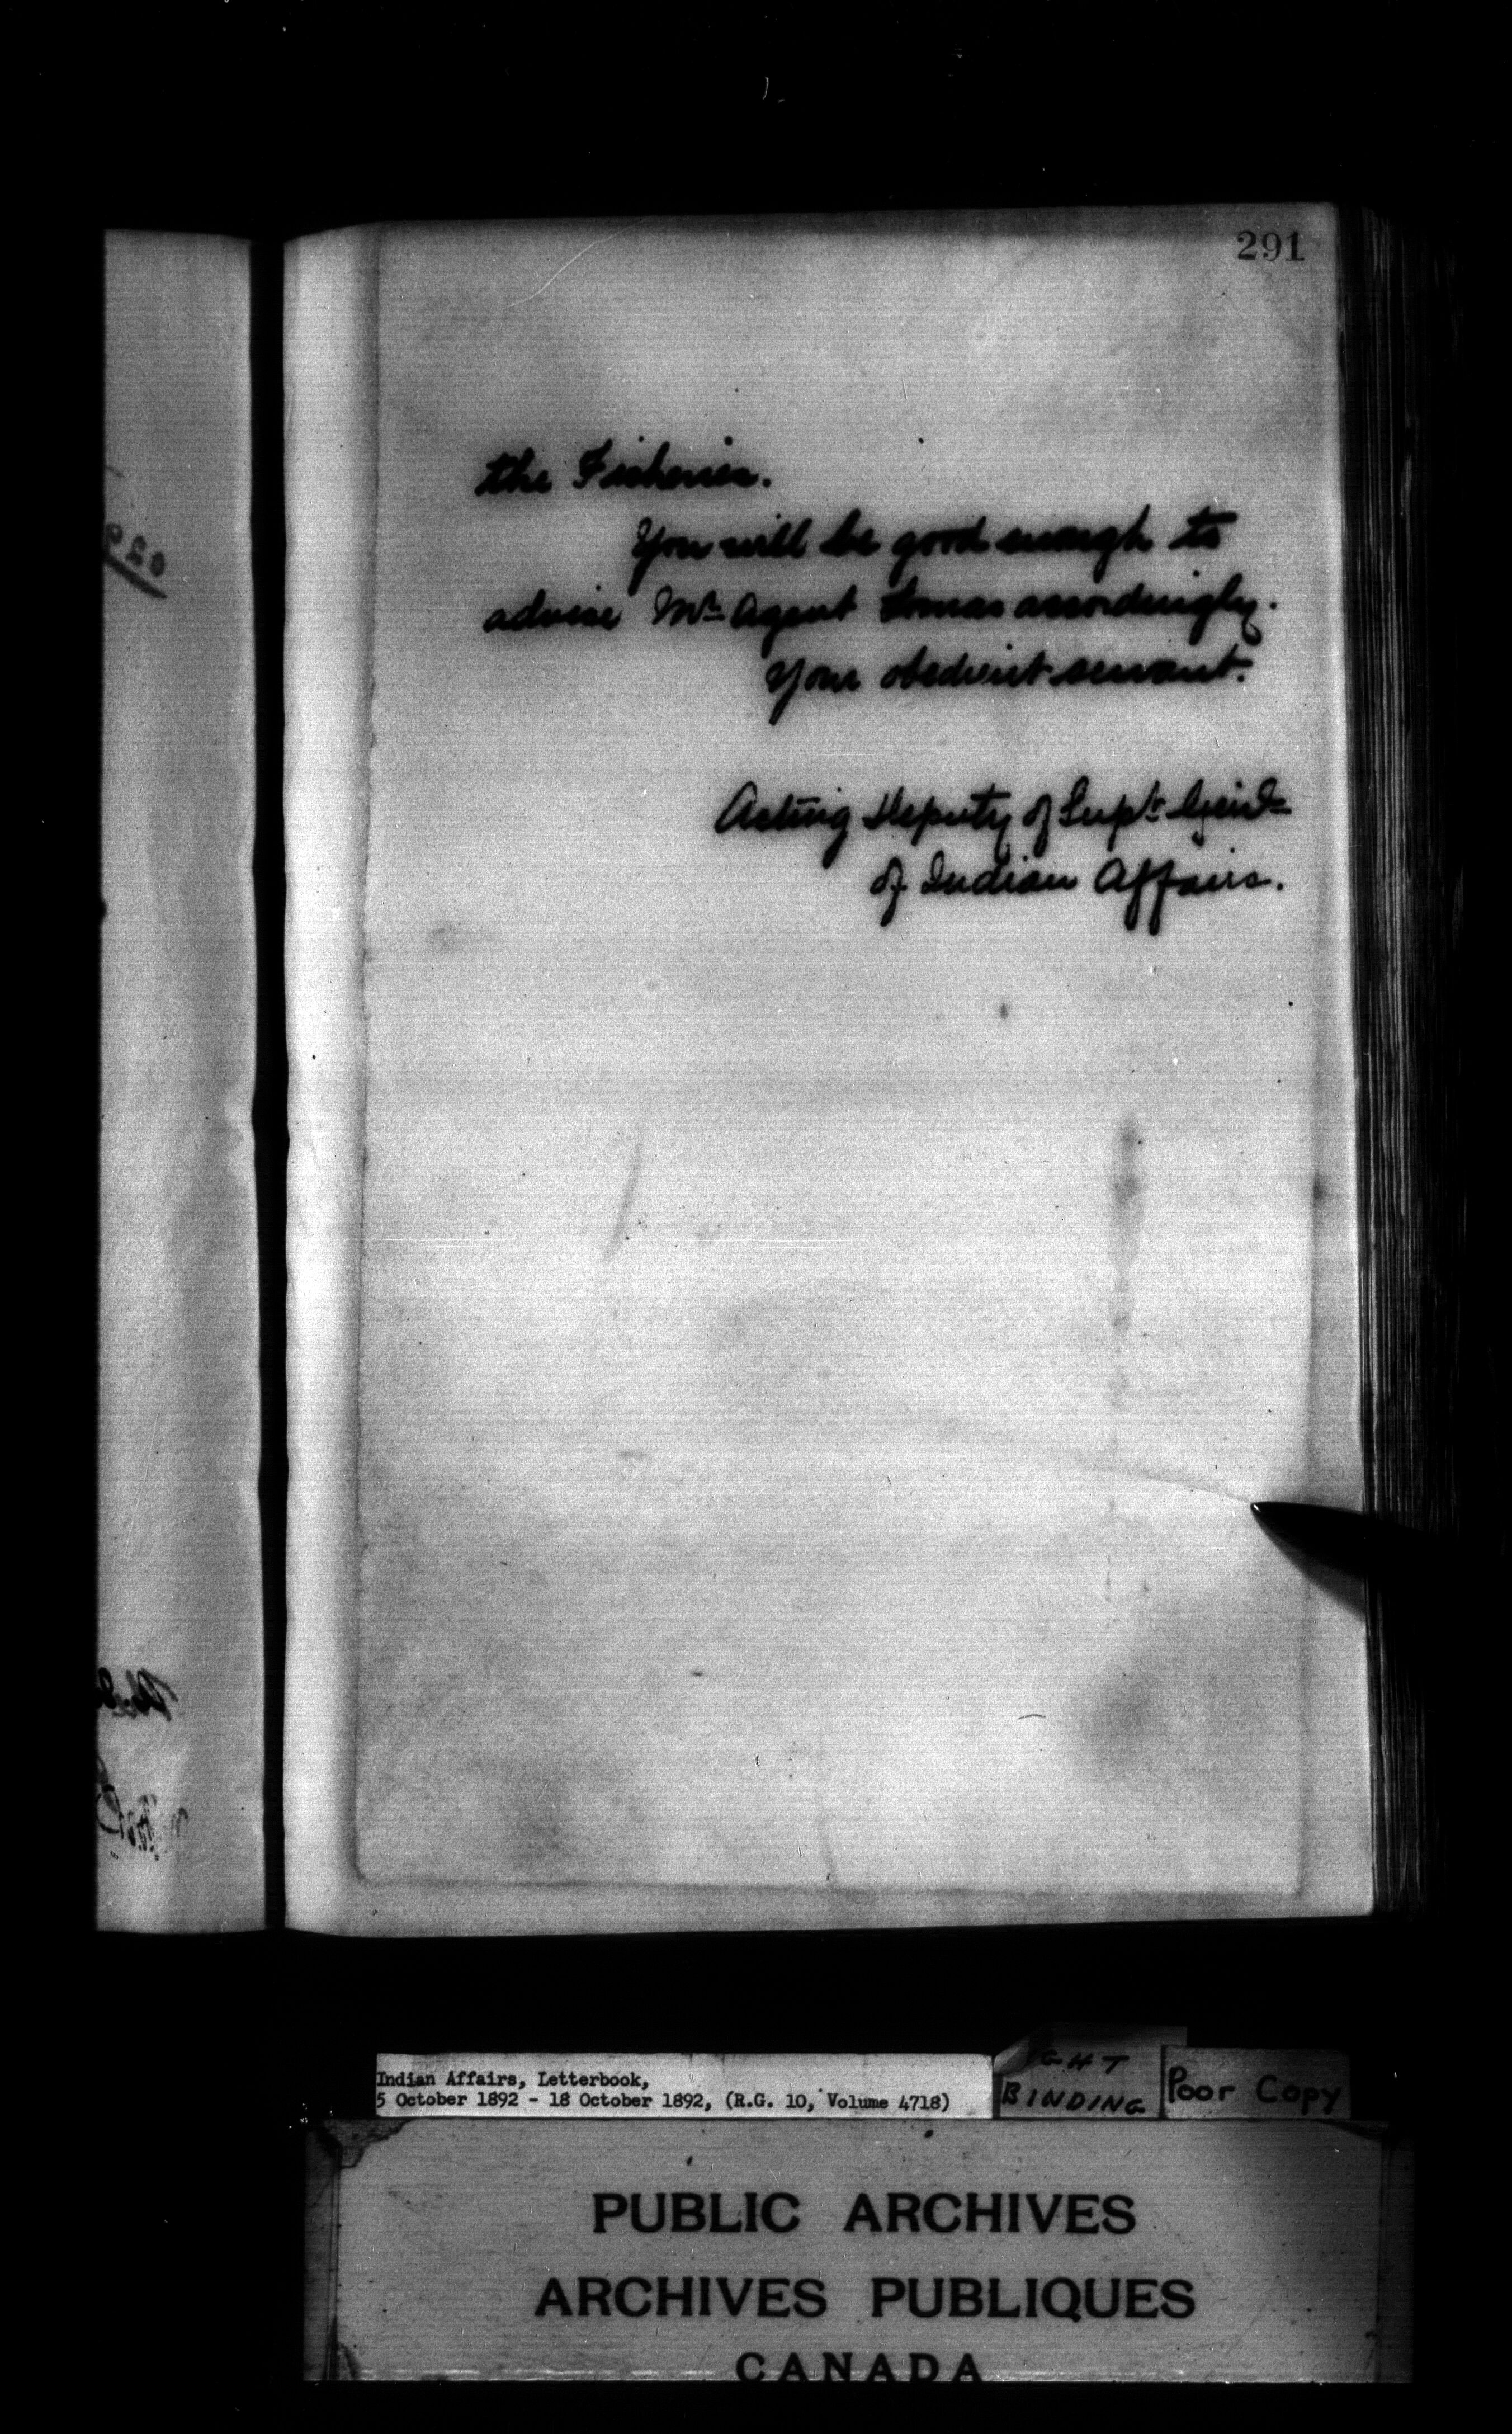 291
the Fisheries.
You will be good enough to
advise Mr. Agent Lomas accordingly.
Your obedient servant.
Acting Deputy of Supt. Genl.
of Indian Affairs.
Indian Affairs, Letterbook,
5 October 1892 - 18 October 1892, (R.G. 10, Volume 4718)
GHT
BINDING
Poor Copy
PUBLIC ARCHIVES
ARCHIVES PUBLIQUES
CANADA